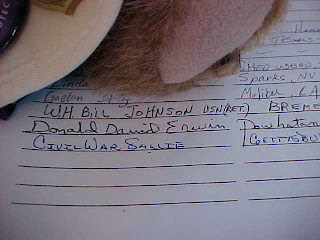 Home
Texas
Linda
Sparks, NV
Gaston
Malibu, CA
WH Bill JOHNSON USN(RET.) BREME
Donald David Erwin Powhatan
CIVIL WAR SALLIE GETTYSBU